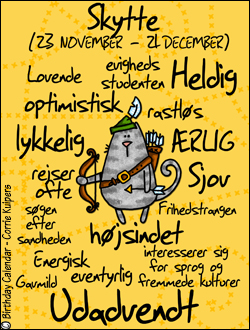 Skytte
(23 NOVEMBER - 21 DECEMBER)
Lovende
evigheds
studenten
Heldig
optimistisk
rastløs
lykkelig
ÆRLIG
rejser
ofte
Sjov
søgen
efter
sandheden
Frihedstrangen
højsindet
Energisk
interesserer sig
for sprog og
fremmede kulturer
Gavmild
eventyrlig
Udadvendt
© Birthday Calendar - Corrie Kuipers